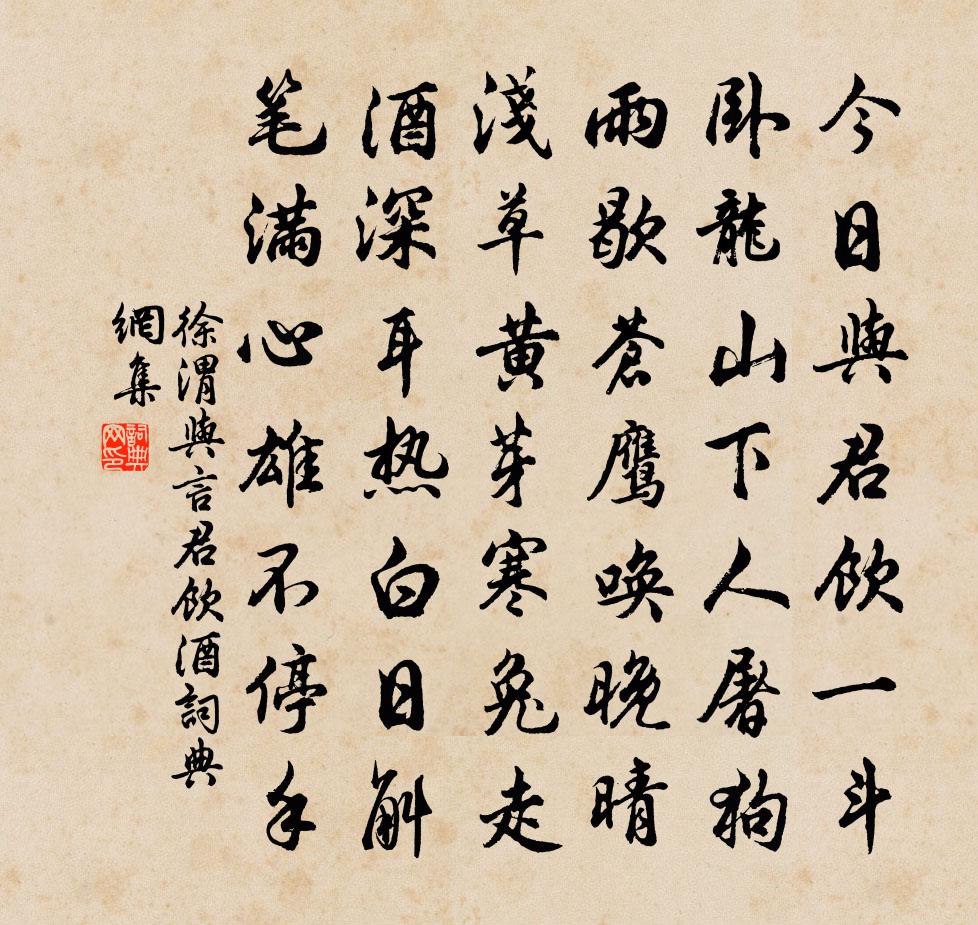 今日與君飲一斗
卧龍山下人屠狗
雨歇蒼鷹唤晚晴
淺草黄芽寒兔走
酒深耳热白日斜
笔满心雄不停手
徐渭與言君飲酒詞典
網集
詞典
网印